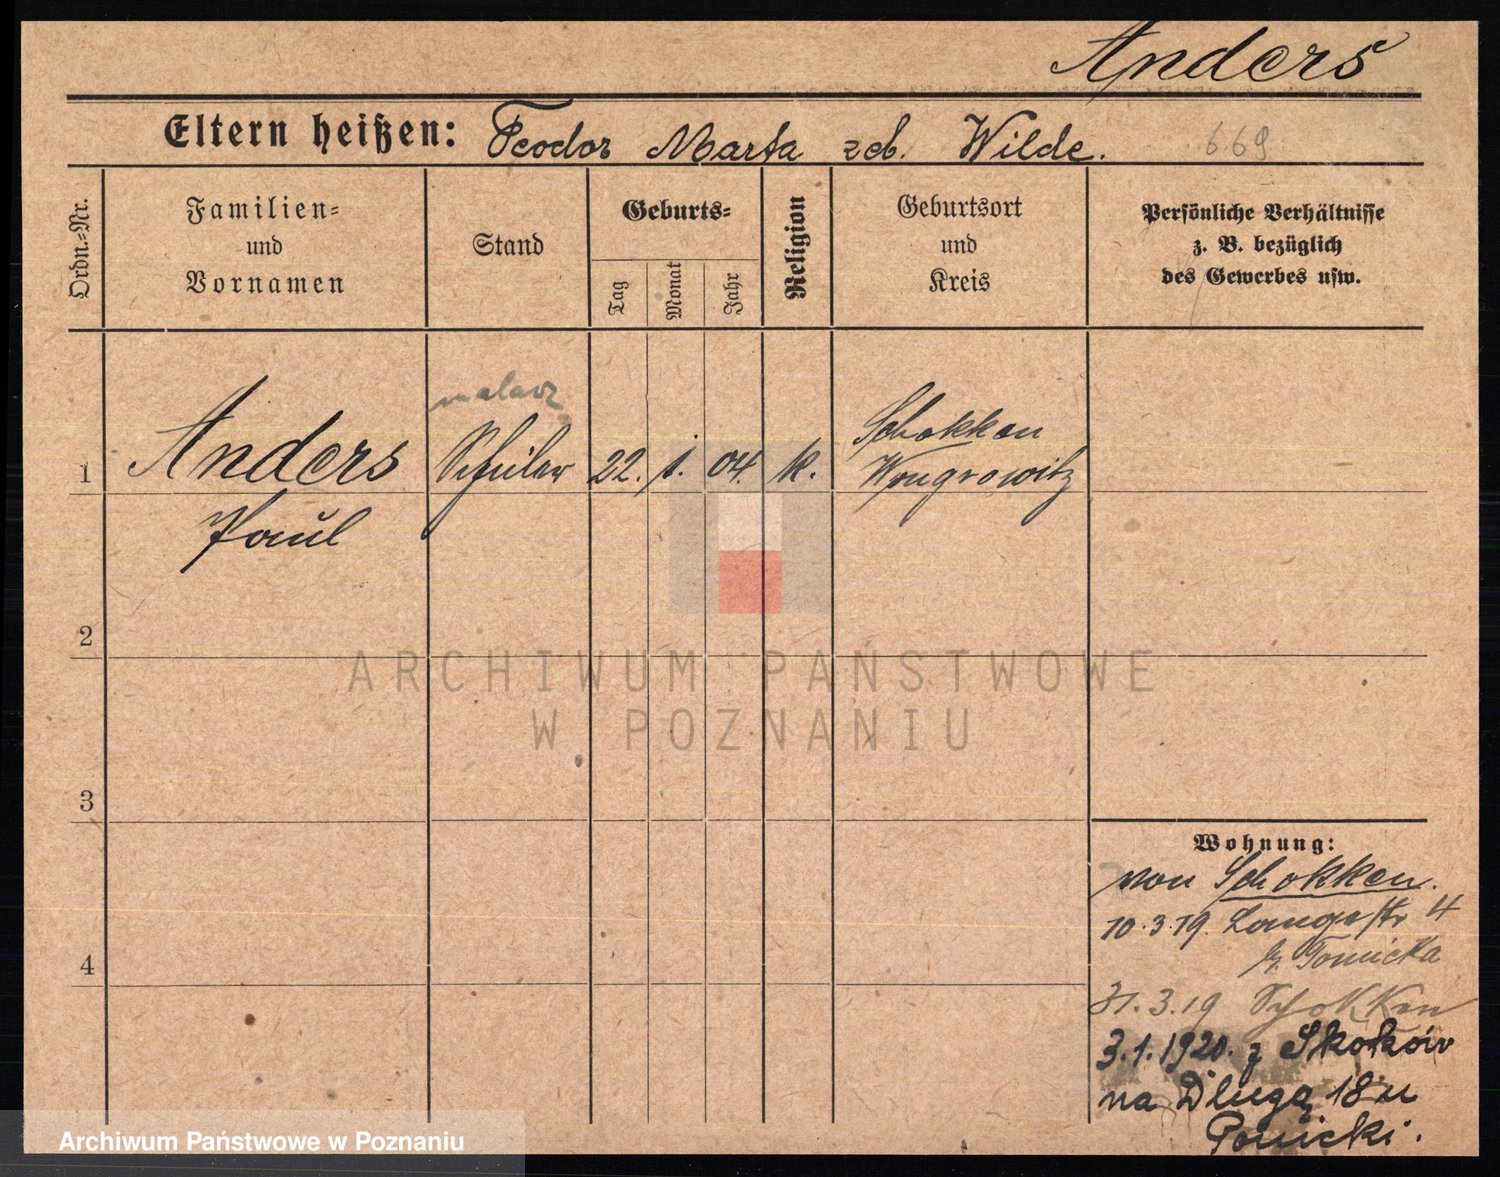 Anders
Eltern heißen: Teodor Marta zeb. Wilde.
669
Ordn.-Nr.
Familien-
und
Vornamen
Stand
Geburts-
Tag
Monat
Jahr
Religion
Geburtsort
und
Kreis
Persönliche Verhältnisse
z. B. bezüglich
des Gewerbes usw.
malarz
1 Anders Schüler 22. 1. 04. k. Schokken
Wongrowitz
Paul
2
3
4
Wohnung:
von Schokken.
10.3.19. Langestr 4
b. Tomicka
31.3.19 Schokken
3.1.1920. z Skoków
na Długą 18 u
ARCHIWUM PAŃSTWOWE
W POZNANIU
Archiwum Państwowe w Poznaniu